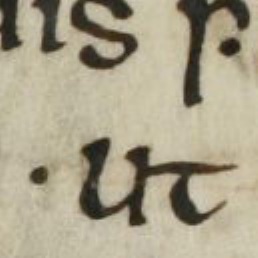 is r.
· ut